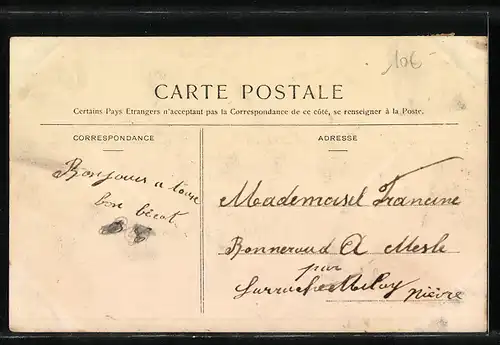 106-
CARTE POSTALE
Certains Pays Etrangers n'acceptant pas la Correspondance de ce côté, se renseigner à la Poste.
CORRESPONDANCE
ADRESSE
Bonjour a tous
bon bécot
Mademoisel Francine
Bonneraud A Mesle
par
Nièvre